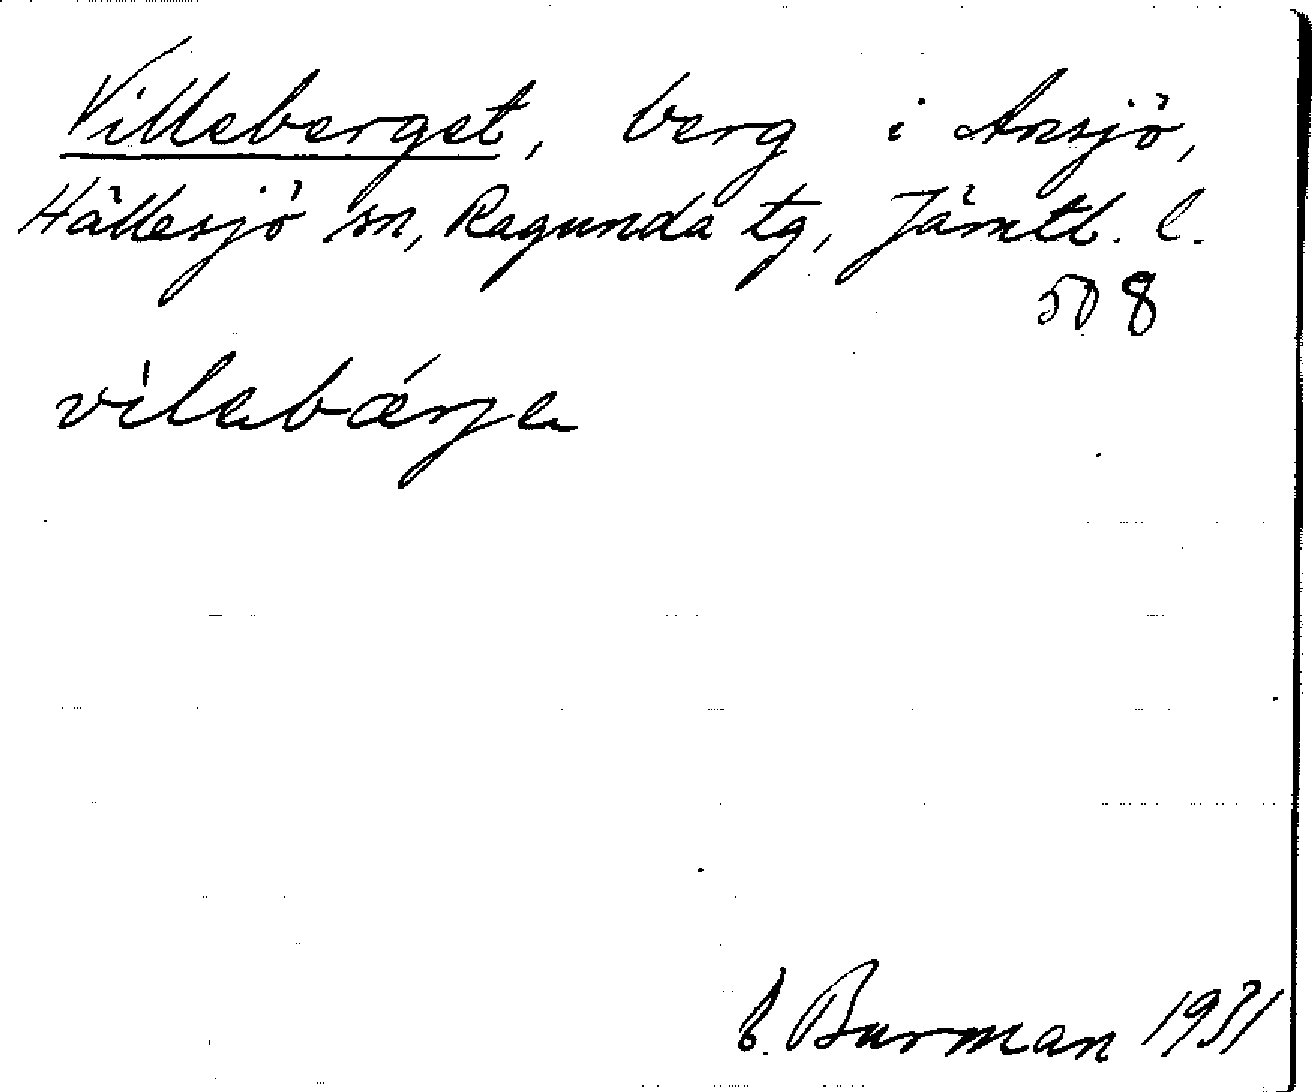 Villeberget, berg i Ansjö,
Hällesjö sn, Ragunda tg, Jämtl. l.
50 8
vilabärja
Burman 1931